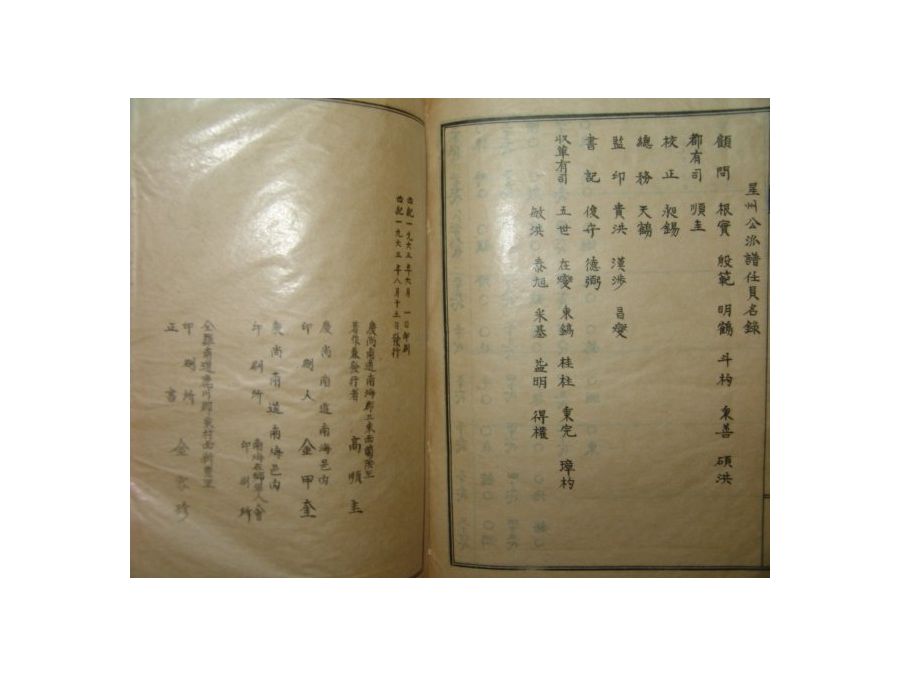 星州公派譜任員名錄
顧問 根實 殷範 明鶴 斗杓 秉善 碩洪
都有司 順圭
校正 昶錫
總務 天鶴
監印 貴洪 漢涉 昌燮
書記 俊守 德弼
収單有司 五世 在燮 東鎬 桂柱 秉完 璋杓
敏洪 泰旭 采基 益明 得權
西紀一九六三年六月 一日印刷
西紀一九六三年八月十五日發行
慶尚南道南海郡三東面蘭陰里
著作兼發行者 高順圭
慶尚南道南海邑内
印刷人 金甲奎
慶尚南道南海邑内
印刷所 南海在鄉軍人會印刷所
全羅南道
印刷所
正書 金 珍